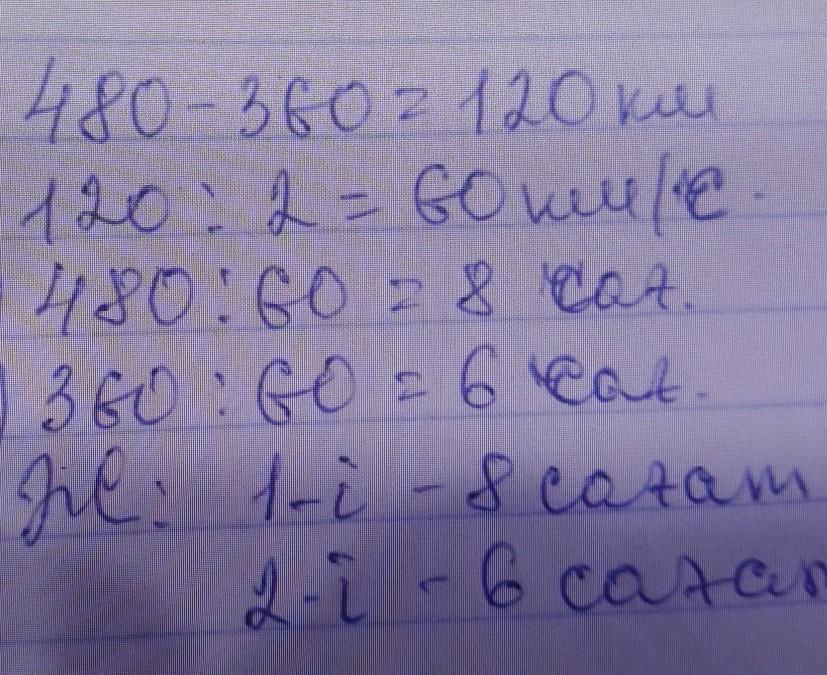 480-360=120км
120:2=60км/с.
480:60=8 сағ.
360:60=6 сағ.
Ж: 1-і-8 сағат
2-і-6 сағат